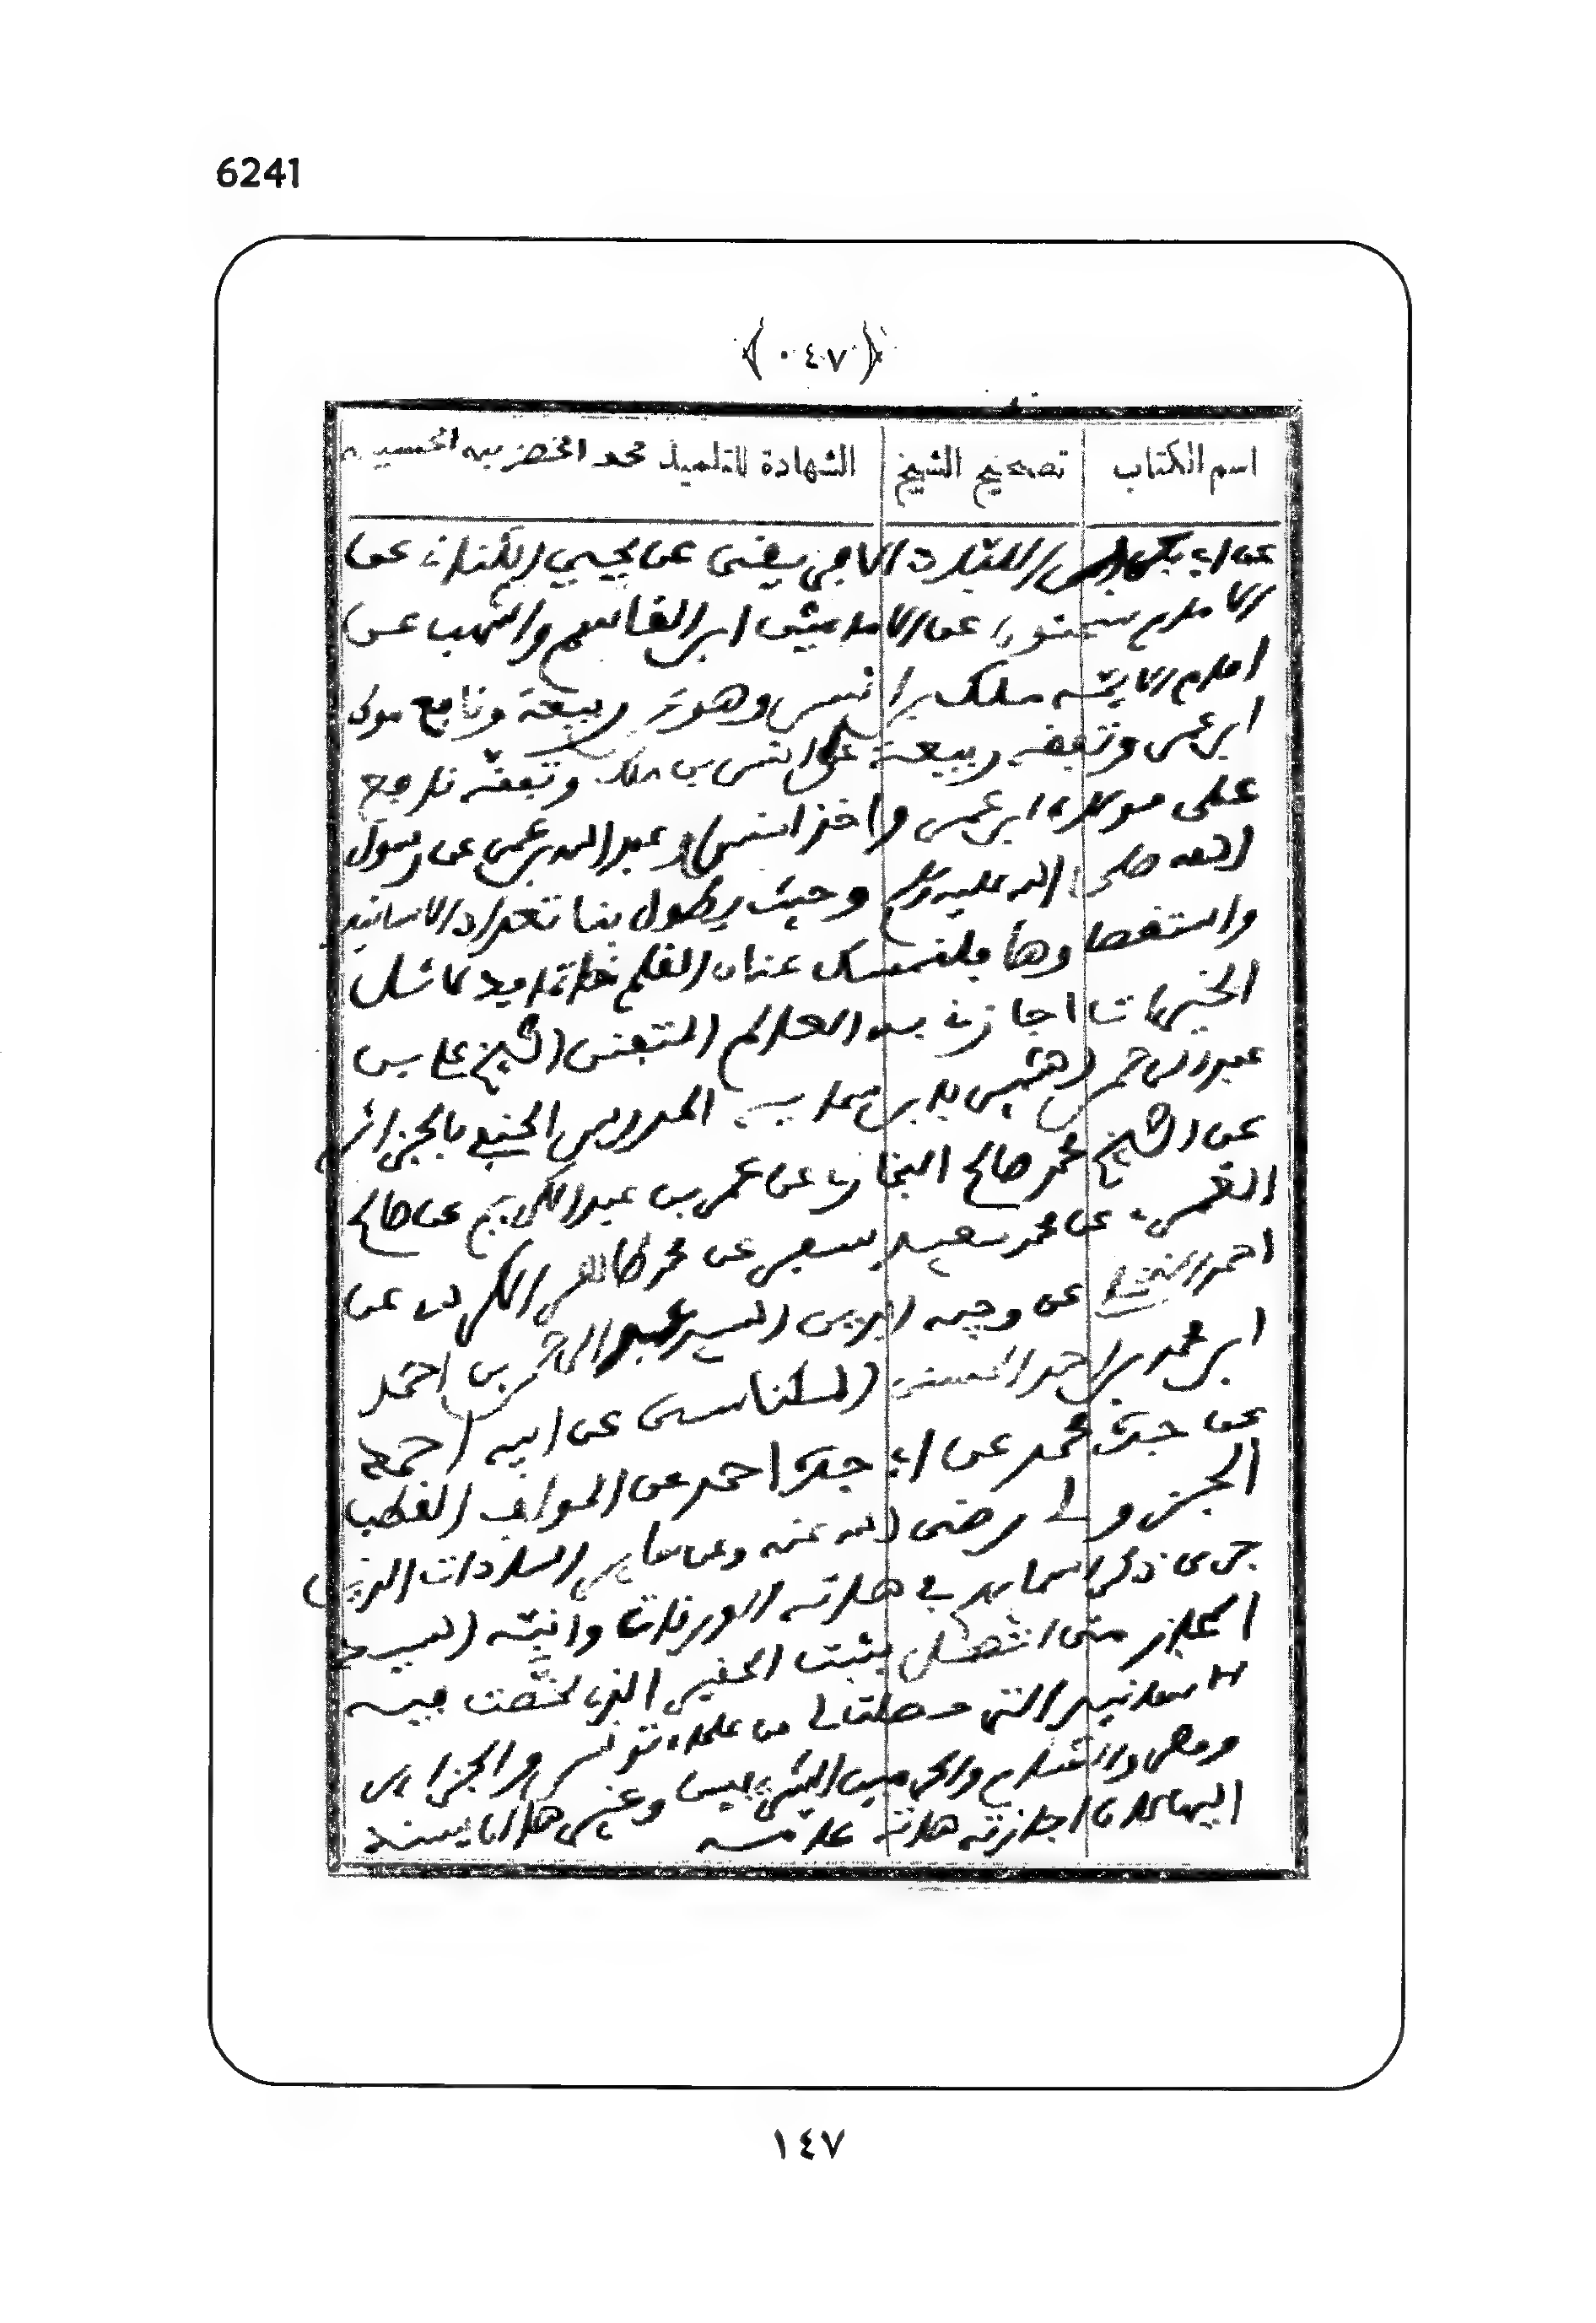 6241
﴿٠٤٧﴾
اسم الكتاب تصحيح الشيخ الشهادة للتلميذ محمد الخضر بن الحسين
عن ابي بكر اللباد الافريقي عن يحيى الكناني عن
الامام سحنون عن الامامين ابن القاسم واشهب عن
امام الايمة ملك بن انس وهو عن ربيعة ونافع مولى
ابن عمر وتفقه ربيعة على انس بن ملك وتفقه نافع
على مولاه ابن عمر واخذ انس وعبد الله بن عمر عن رسول
الله صلى الله عليه وسلم وحيث يطول بنا تعداد الاسانيد
واستقصاوها فلنمسك عنان القلم دلائل
الخيرات اجازني به العالم المتفنن الشيخ علي بن
عبد الرحمن بن سماية المدرس الحنفي بالجزائر
عن الشيخ محمد صالح البخاري عن عمر بن عبد الكريم عن صالح
عن محمد سعيد سفر عن محمد طاهر الكردي عن
احمد النخلي عن وجيه الدين السيد عبد الرحمن بن احمد
ابن محمد بن احمد الحسني المكناسي عن ابيه احمد
عن جده محمد عن ابي جده احمد عن المولف القطب
الجزولي رضي الله عنه وعن ساير السادات الذين
جرى ذكر اسمايهم في هاته الورقات وانبه السيد
المجاز متى اتصل بثبت الحقير الذي لخصت فيه
اسانيدي التي وصلت لي من علماء تونس والجزاير
ومصر والشام والحرمين الشريفين وغيرها ان يسند
اليها لان اجازته هاته عامة
١٤٧